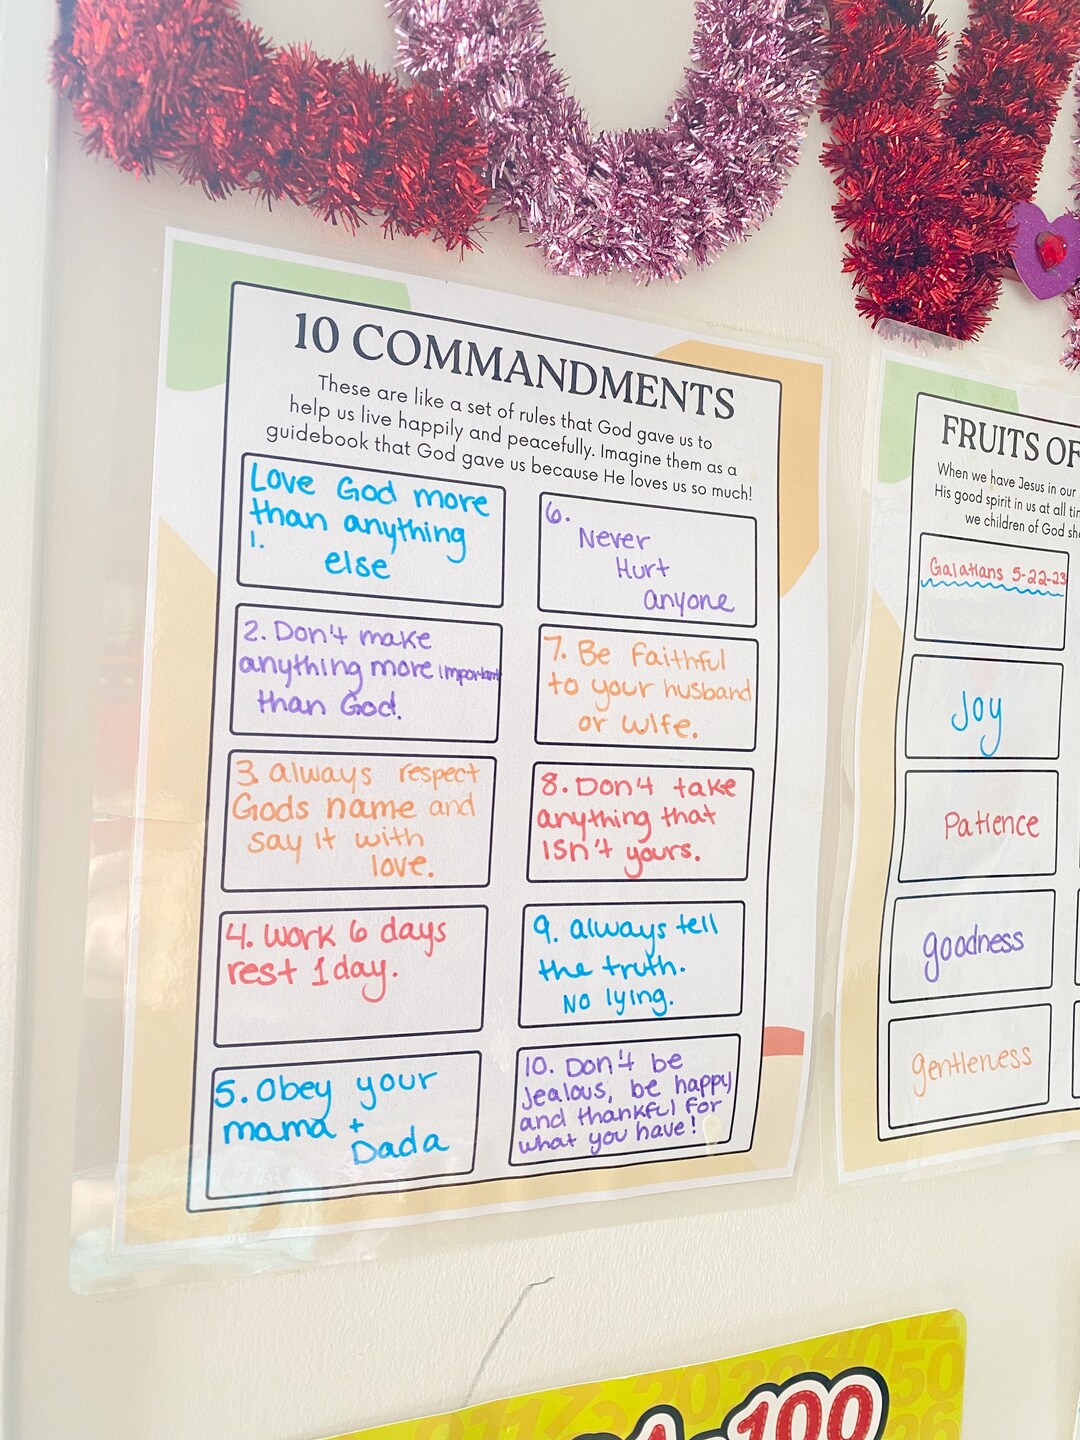 10 COMMANDMENTS
These are like a set of rules that God gave us to
help us live happily and peacefully. Imagine them as a
guidebook that God gave us because He loves us so much!
Love God more
than anything
1.
else
2. Don't make
anything more important
than God.
3. always respect
Gods name and
say it with
love.
4. work 6 days
rest 1 day.
5. Obey your
mama +
Dada
6.
Never
Hurt
anyone
7. Be Faithful
to your husband
or wife.
8. Don't take
anything that
isn't yours.
9. always tell
the truth.
No lying.
10. Don't be
jealous, be happy
and thankful for
what you have!
FRUITS OF
When we have Jesus in our
His good spirit in us at all
we children of God
Galatians 5-22-23
Joy
Patience
goodness
gentleness
100